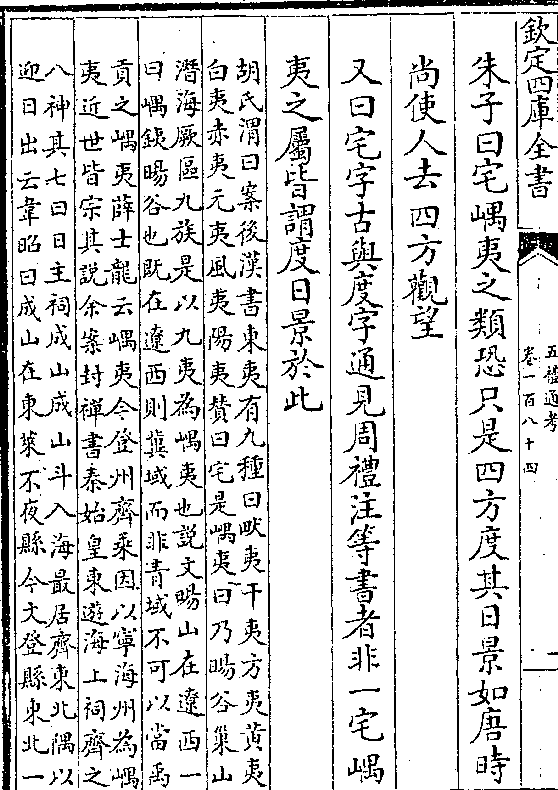 欽定四庫全書
五禮通考
卷一百八十四
朱子曰宅嵎夷之類恐只是四方度其日景如唐時
尚使人去四方觀望
又曰宅字古與度字通見周禮注等書者非一宅嵎
夷之屬皆謂度日景於此
胡氏渭曰案後漢書東夷有九種曰畎夷干夷方夷黄夷
白夷赤夷元夷風夷陽夷贊曰宅是嵎夷曰乃暘谷巢山
潛海厥區九族是以九夷為嵎夷也説文暘山在遼西一
曰嵎銕暘谷也既在遼西則冀域而非青域不可以當禹
貢之嵎夷薛士龍云嵎夷今登州齊乘因以寧海州為嵎
夷近世皆宗其説余案封禪書秦始皇東遊海上祠齊之
八神其七曰日主祠成山成山斗入海最居齊東北隅以
迎日出云韋昭曰成山在東萊不夜縣今文登縣東北一